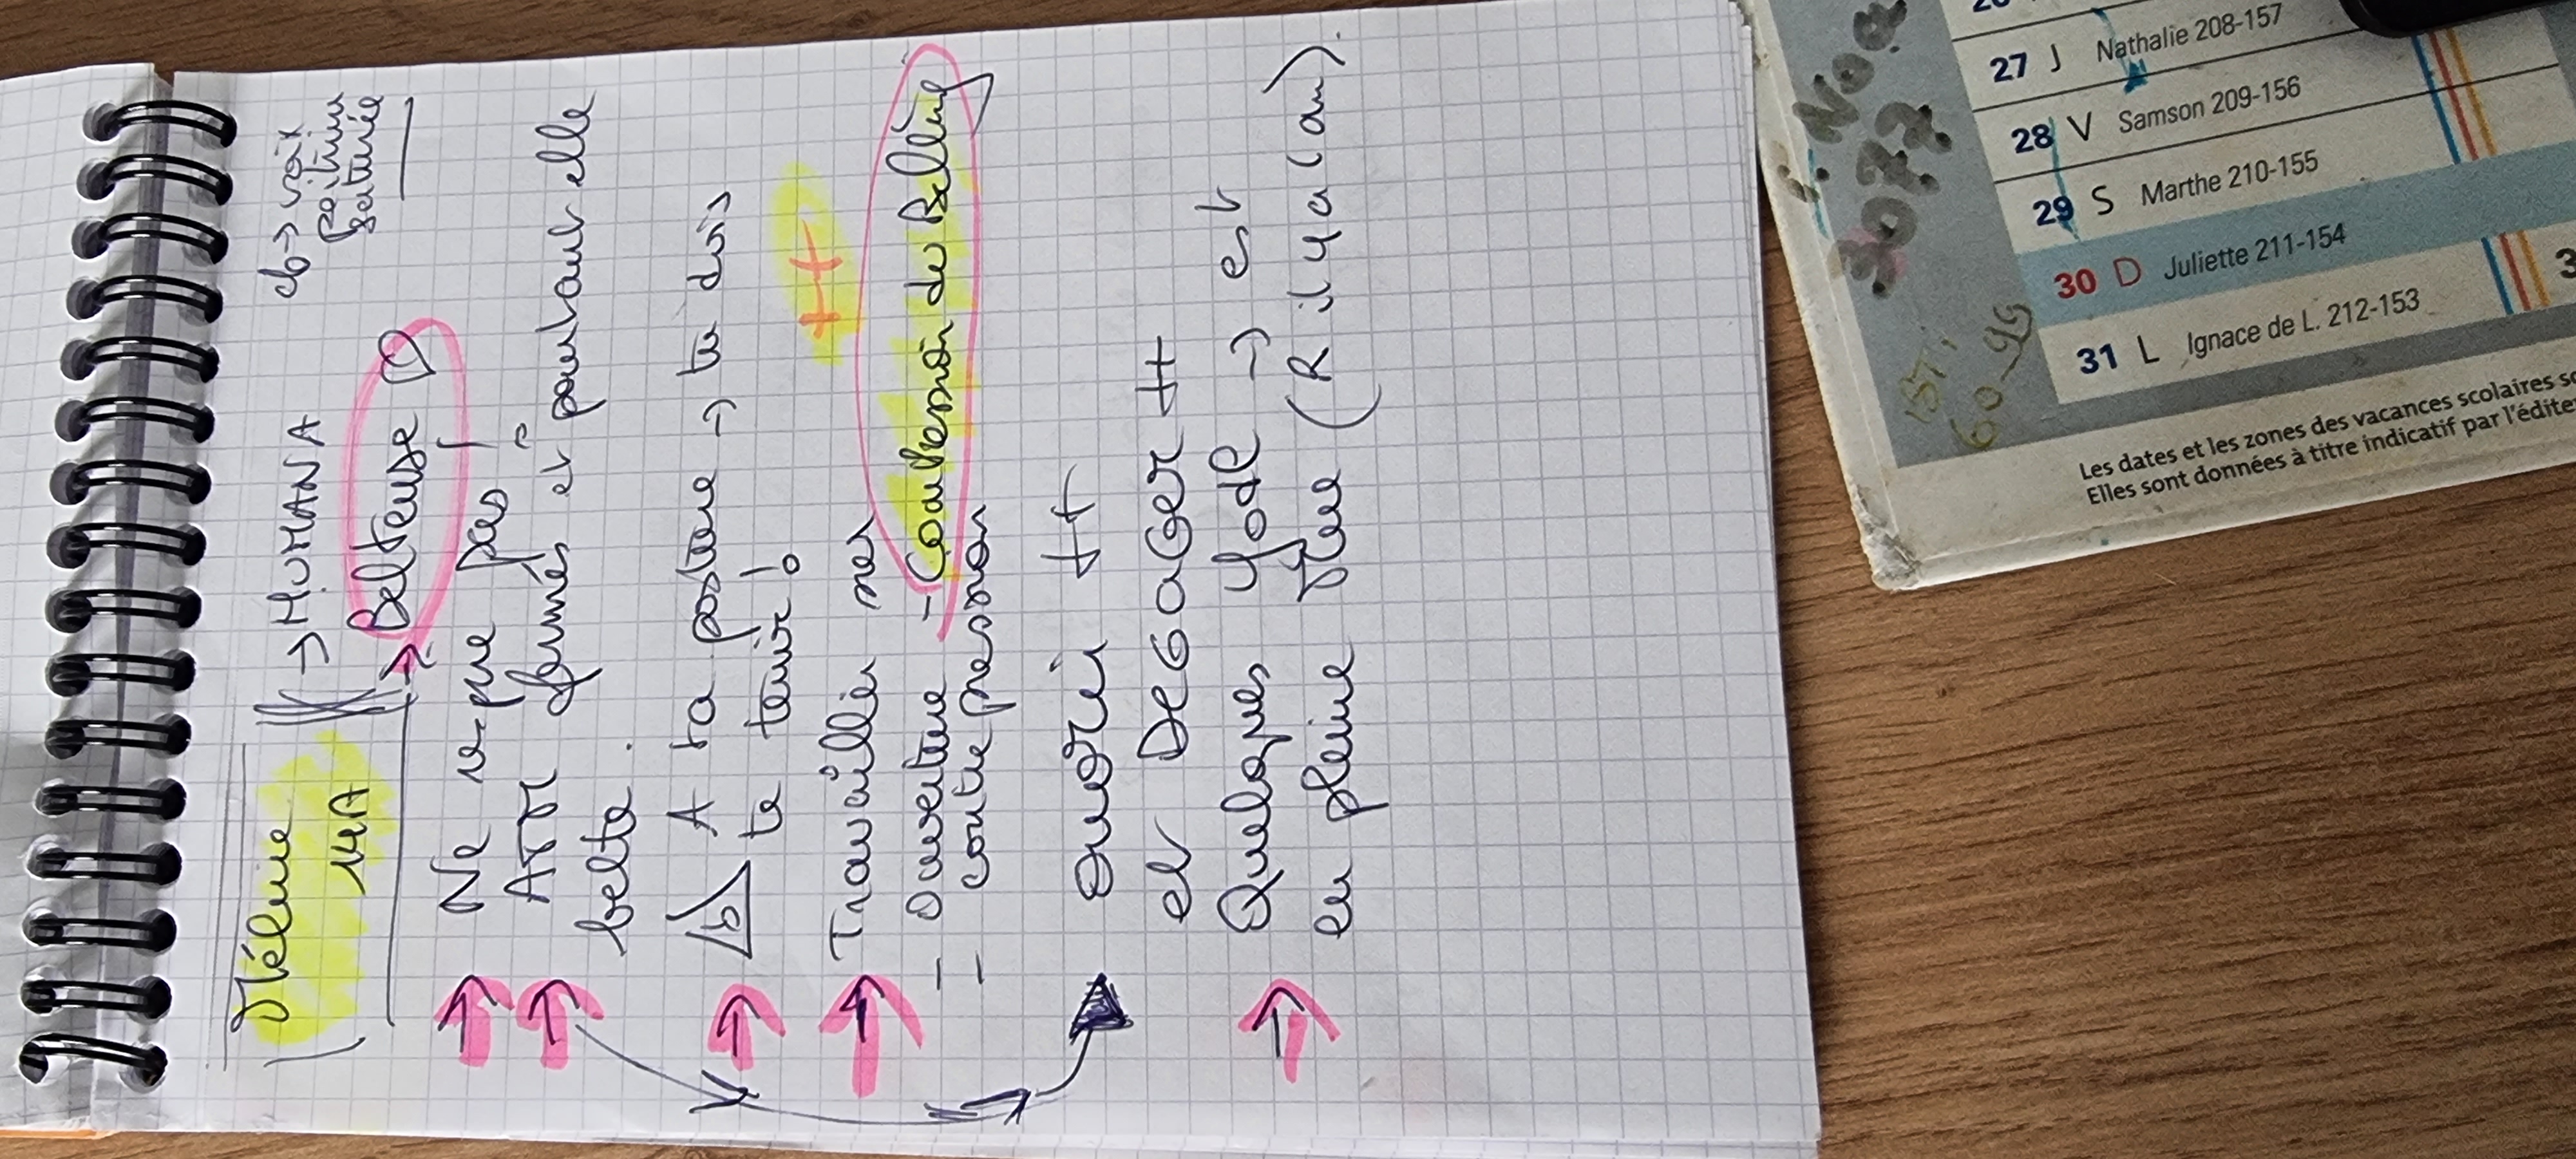 Méline
14A
→ HUMANA
→ Belteuse ♡
→ voix
saturée
Ne v-que pas
ATM fermés et pourtant elle
belte.
A ta posture → tu dois
te tenir !
++
Travailler ses
- Ouverture - Compression de Belting
- contre pression
ouvrir ++
et DEGAGER ++
Quelques Yodl → est
en pleine Mue (R il y a 1 an).
27 J Nathalie 208-157
28 V Samson 209-156
29 S Marthe 210-155
30 D Juliette 211-154
31 L Ignace de L. 212-153
3077
60-99
Les dates et les zones des vacances scolaires
Elles sont données à titre indicatif par l'édite